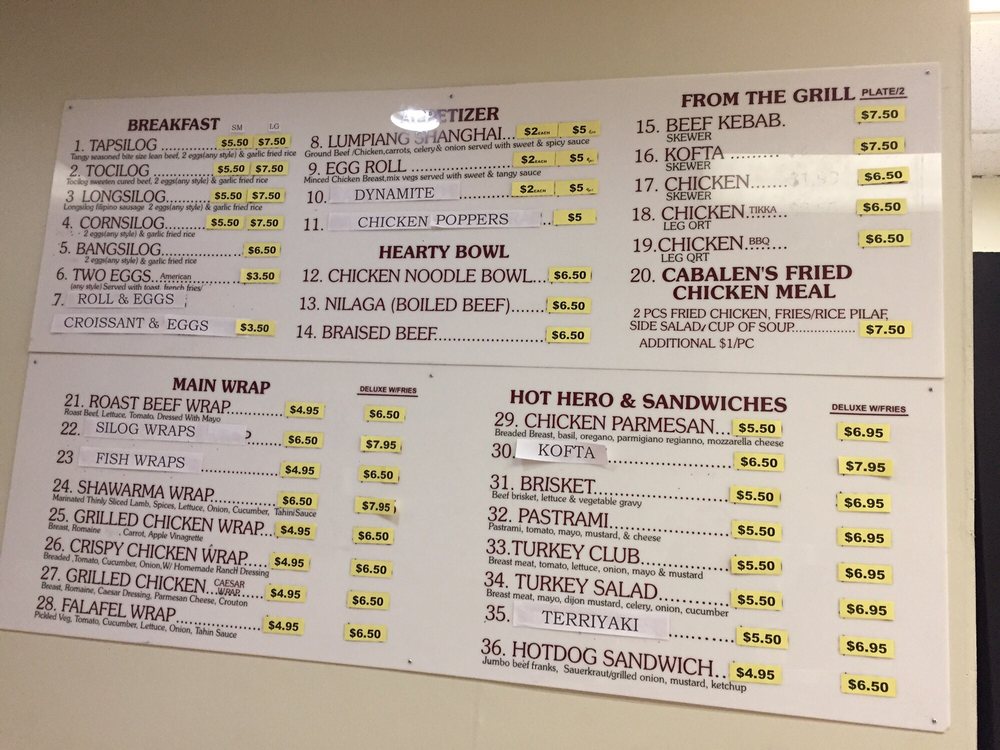 BREAKFAST
SM LG
1. TAPSILOG $5.50 $7.50
Tangy seasoned bite size lean beef, 2 eggs(any style) & garlic fried rice
2. TOCILOG $5.50 $7.50
Tocilog sweeten cured beef, 2 eggs(any style) & garlic fried rice
3 LONGSILOG $5.50 $7.50
Longsilog filipino sausage 2 eggs(any style) & garlic fried rice
4. CORNSILOG $5.50 $7.50
2 eggs(any style) & garlic fried rice
5. BANGSILOG $6.50
2 eggs(any style) & garlic fried rice
6. TWO EGGS American $3.50
(any style) Served with toast, french fries/
7. ROLL & EGGS
CROISSANT & EGGS $3.50
APPETIZER
8. LUMPIANG SHANGHAI... $2 EACH $5
Ground Beef /Chicken,carrots, celery& onion served with sweet & spicy sauce
9. EGG ROLL $2 EACH $5
Minced Chicken Breast,mix vegs served with sweet & tangy sauce
10. DYNAMITE $2 EACH $5
11. CHICKEN POPPERS $5
HEARTY BOWL
12. CHICKEN NOODLE BOWL... $6.50
13. NILAGA (BOILED BEEF) $6.50
14. BRAISED BEEF $6.50
FROM THE GRILL PLATE/2
15. BEEF KEBAB. $7.50
SKEWER
16. KOFTA $7.50
SKEWER
17. CHICKEN $6.50
SKEWER
18. CHICKEN TIKKA $6.50
LEG QRT
19.CHICKEN BBQ $6.50
LEG QRT
20. CABALEN'S FRIED
CHICKEN MEAL
2 PCS FRIED CHICKEN, FRIES/RICE PILAF,
SIDE SALAD/ CUP OF SOUP $7.50
ADDITIONAL $1/PC
MAIN WRAP DELUXE W/FRIES
21. ROAST BEEF WRAP $4.95 $6.50
Roast Beef, Lettuce, Tomato, Dressed With Mayo
22. SILOG WRAPS $6.50 $7.95
23 FISH WRAPS $4.95 $6.50
24. SHAWARMA WRAP $6.50 $7.95
Marinated Thinly Sliced Lamb, Spices, Lettuce, Onion, Cucumber, Tahini Sauce
25. GRILLED CHICKEN WRAP... $4.95 $6.50
Breast, Romaine , Carrot, Apple Vinagrette
26. CRISPY CHICKEN WRAP $4.95 $6.50
Breaded ,Tomato, Cucumber, Onion,W/ Homemade Ranch Dressing
27. GRILLED CHICKEN CAESAR WRAP $4.95 $6.50
Breast, Romaine, Caesar Dressing, Parmesan Cheese, Crouton
28. FALAFEL WRAP $4.95 $6.50
Pickled Veg, Tomato, Cucumber, Lettuce, Onion, Tahin Sauce
HOT HERO & SANDWICHES DELUXE W/FRIES
29. CHICKEN PARMESAN... $5.50 $6.95
Breaded Breast, basil, oregano, parmigiano regianno, mozzarella cheese
30. KOFTA $6.50 $7.95
31. BRISKET $5.50 $6.95
Beef brisket, lettuce & vegetable gravy
32. PASTRAMI $5.50 $6.95
Pastrami, tomato, mayo, mustard, & cheese
33.TURKEY CLUB $5.50 $6.95
Breast meat, tomato, lettuce, onion, mayo & mustard
34. TURKEY SALAD $5.50 $6.95
Breast meat, mayo, dijon mustard, celery, onion, cucumber
35. TERRIYAKI $5.50 $6.95
36. HOTDOG SANDWICH.. $4.95 $6.50
Jumbo beef franks, Sauerkraut/grilled onion, mustard, ketchup